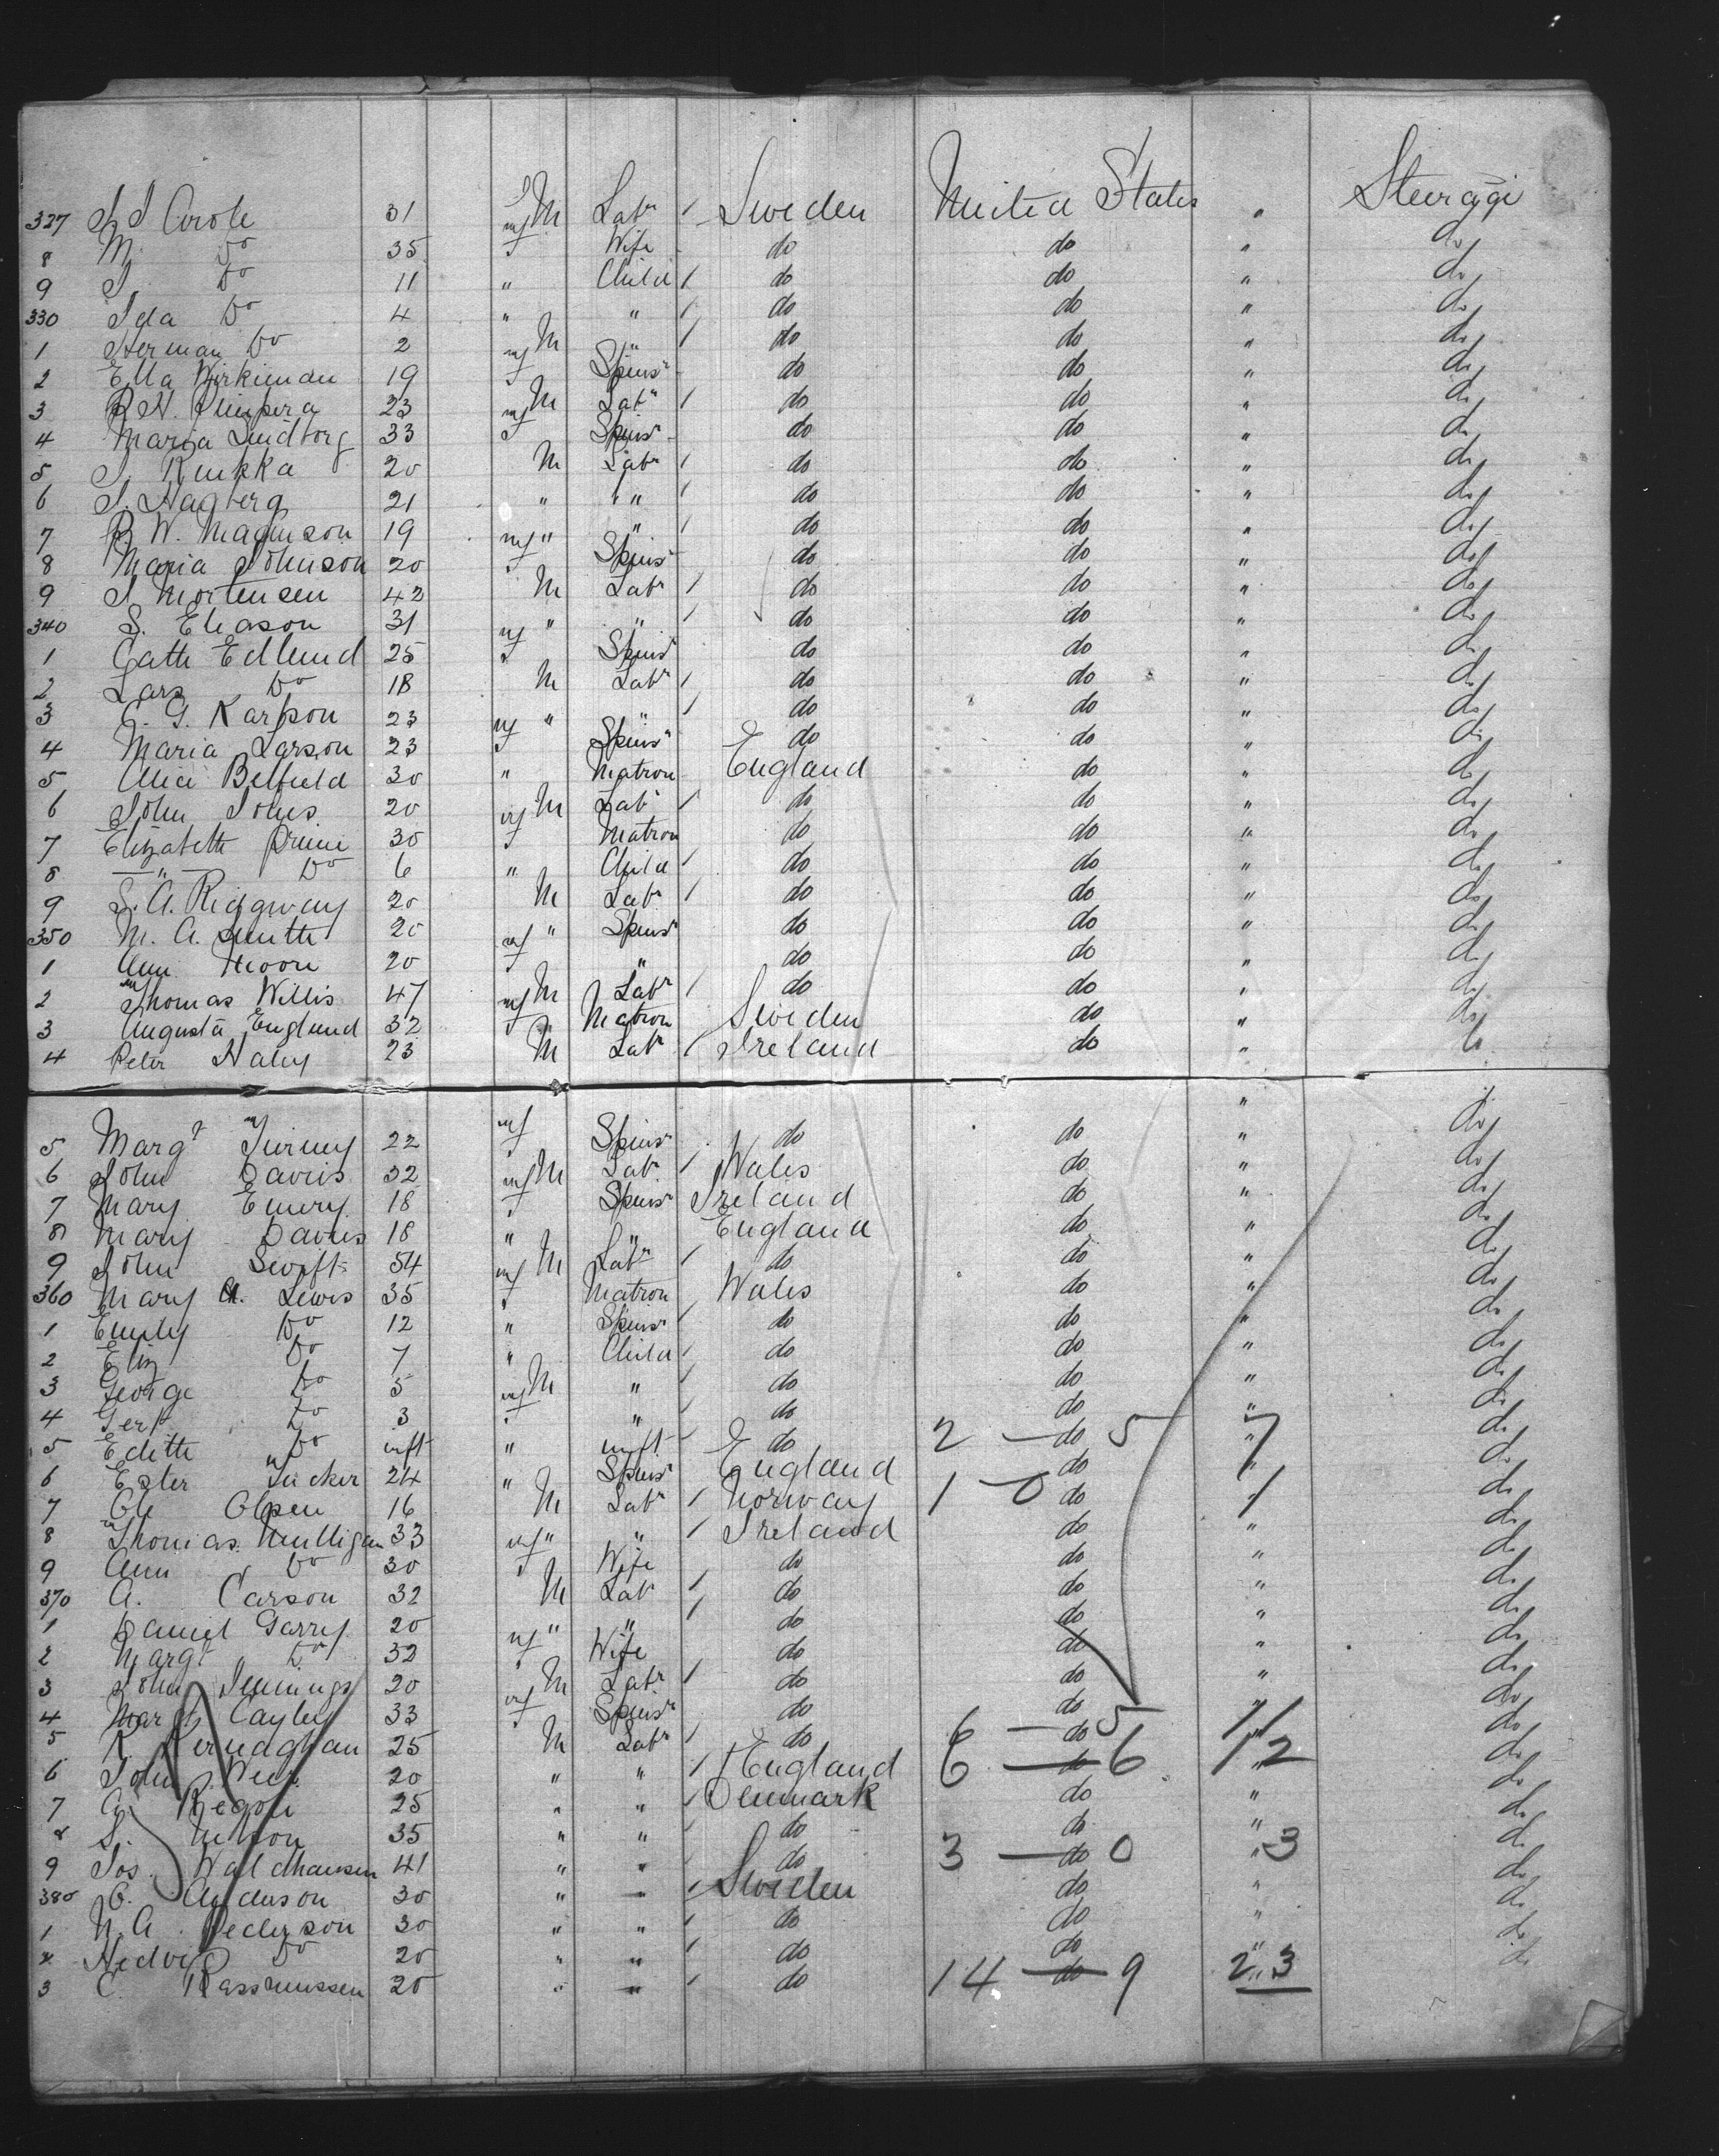 327 31 M Labr / Sweden United States " Steerage
8 M. Do 35 f Wife do do " do
9 Do 11 " Child / do do " do
330 Ida Do 4 " " / do do " do
1 Herman Do 2 M " / do do " do
2 Ella 19 f Spinsr do do " do
3 23 M Labr / do do " do
4 Maria Lindborg 33 f Spinsr do do " do
5 20 M Labr / do do " do
6 Hagberg 21 " " " / do do " do
7 W. Magnuson 19 " " / do do " do
8 Maria Johnson 20 f Spinsr do do " do
9 Mortensen 42 M Labr / do do " do
340 S. Eleason 31 " " / do do " do
1 Cath Edlund 25 f Spinsr do do " do
2 Lars Do 18 M Labr / do do " do
3 G. Karlson 23 " " / do do " do
4 Maria Larson 23 f Spinsr do do " do
5 Alice Belfield 30 " Matron England do " do
6 John Johns 20 M Labr / do do " do
7 Elizabeth 30 f Matron do do " do
8 — " — Do 6 " Child / do do " do
9 S. A. Ridgway 20 M Labr / do do " do
350 M. A. Smith 20 " Spinsr do do " do
1 Ann Moore 20 f " do do " do
2 Thomas Willis 47 M Labr / do do " do
3 Augusta Englund 32 f Matron Sweden do " do
4 Peter Haley 23 M Labr / Ireland do " do
5 Margt 22 f Spinsr do do " do
6 John Davies 32 M Labr / Wales do " do
7 Mary Emery 18 f Spinsr Ireland do " do
8 Mary Davies 18 " " England do " do
9 John Swift 54 M Labr / do do " do
360 Mary A. Lewis 35 f Matron Wales do " do
1 Emily Do 12 " Spinsr do do " do
2 Eliz Do 7 " Child / do do " do
3 George Do 5 M " / do do " do
4 Gert Do 3 f " / do do " do
5 Edith Do inft " inft do 2 — do 5 7 do
6 Ester Tucker 24 " Spinsr England do " do
7 Ole Olsen 16 M Labr / Norway 1 — 0 do 1 do
8 Thomas Mulligan 33 " " / Ireland do " do
9 Ann Do 30 f Wife do do " do
370 A. Carson 32 M Labr / do do " do
1 Daniel Garry 20 " " / do do " do
2 Margt Do 32 f Wife do do " do
3 John Jennings 20 M Labr / do do " do
4 Margt Cayley 33 f Spinsr do do " do
5 K. Kernaghan 25 M Labr / do 6 — do 5 11 do
6 John 20 " " / England 6 — do 6 12 do
7 25 " " / Denmark do " do
8 S. 35 " " / do do " do
9 Jos. Waldhausen 41 " " / do 3 — do 0 3 do
380 Anderson 30 " " / Sweden do " do
1 N. A. Pederson 30 " " / do do " do
2 Hedvig Do 20 " " / do do " do
3 C. Rassmussen 20 " " / do 14 — do 9 23